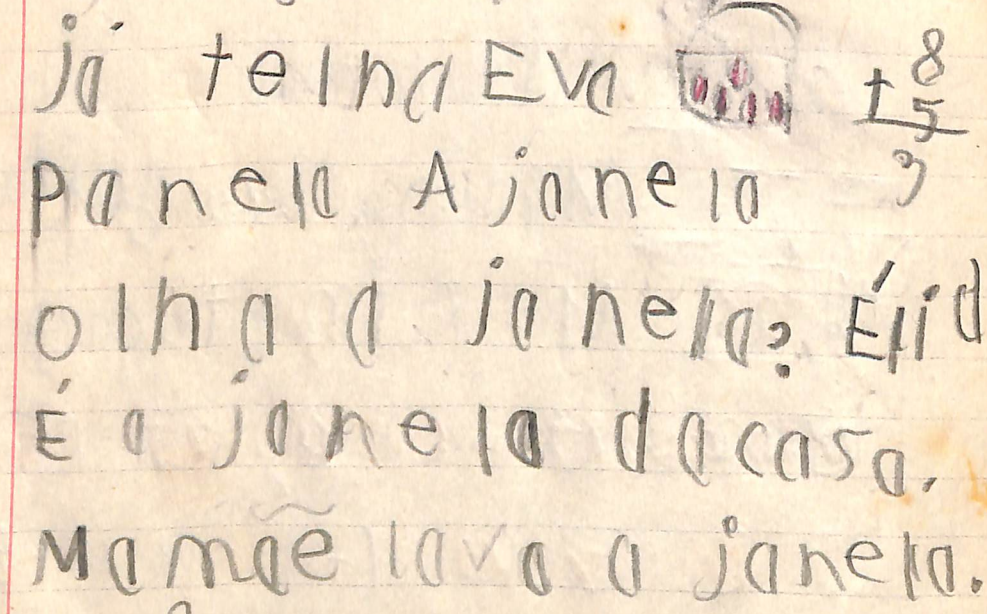 já telha Eva
8
+ 5
panela A janela
olha a janela? Élid
É a janela da casa.
Mamãe lava a janela.